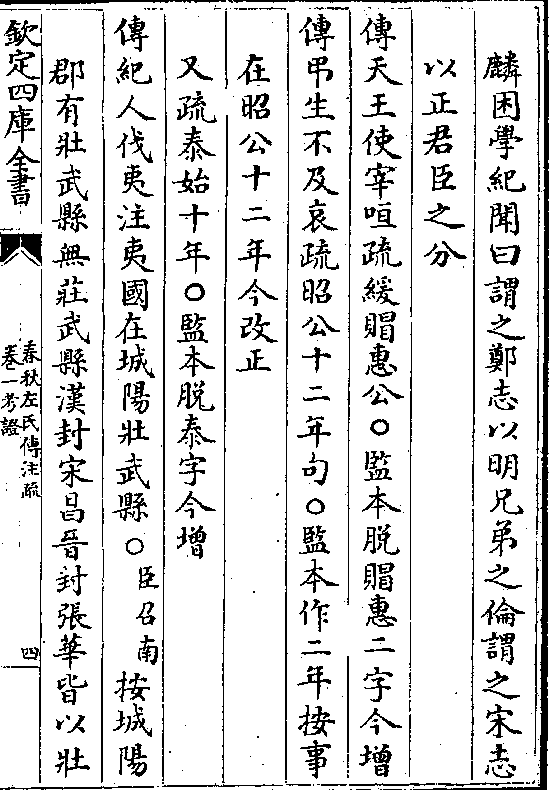 麟困學紀聞曰謂之鄭志以明兄弟之倫謂之宋志
以正君臣之分
傳天王使宰咺疏緩賵惠公○監本脫賵惠二字今增
傳弔生不及哀疏昭公十二年句○監本作二年按事
在昭公十二年今改正
又疏泰始十年○監本脫泰字今增
傳紀人伐夷注夷國在城陽壯武縣○臣召南按城陽
郡有壯武縣無莊武縣漢封宋昌晉封張華皆以壯
欽定四庫全書
春秋左氏傳注疏
卷一考證
四